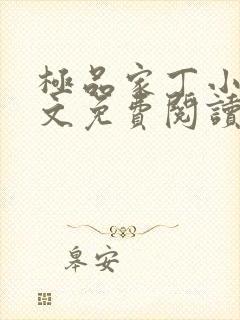 極品家丁小
文免費閱讀
皋安